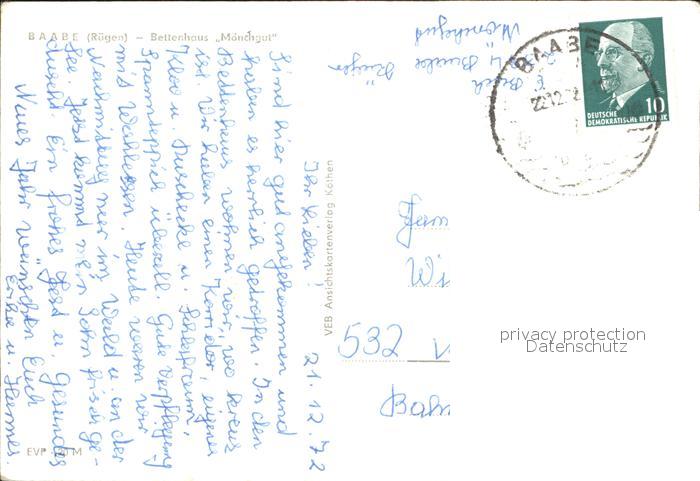 BAABE (Rügen) — Bettenhaus „Mönchgut"
21.12.72
Ihr Lieben!
Sind hier gut angekommen und
haben es herrlich getroffen. In dem
Bettenhaus wohnen wir, wo Kreuz
ist. Wir haben einen Korridor, eigenes
Klo u. Duschecke u. Schlafraum,
Spannteppich überall. Gute Verpflegung
mit Wahlessen. Heute waren wir
Nachmittag nur im Wald u. an der
See. Jetzt kommt mein Sohn frisch ge-
duscht. Ein frohes Fest u. gesundes
Neues Jahr wünschen Euch
u. Hannes.
EVP M
VEB Ansichtskartenverlag Köthen
Baabe Rügen
Mönchgut
BAABE
22.12.
10
DEUTSCHE
DEMOKRATISCHE REPUBLIK
Fam
Wi
532 W
privacy protection
Datenschutz